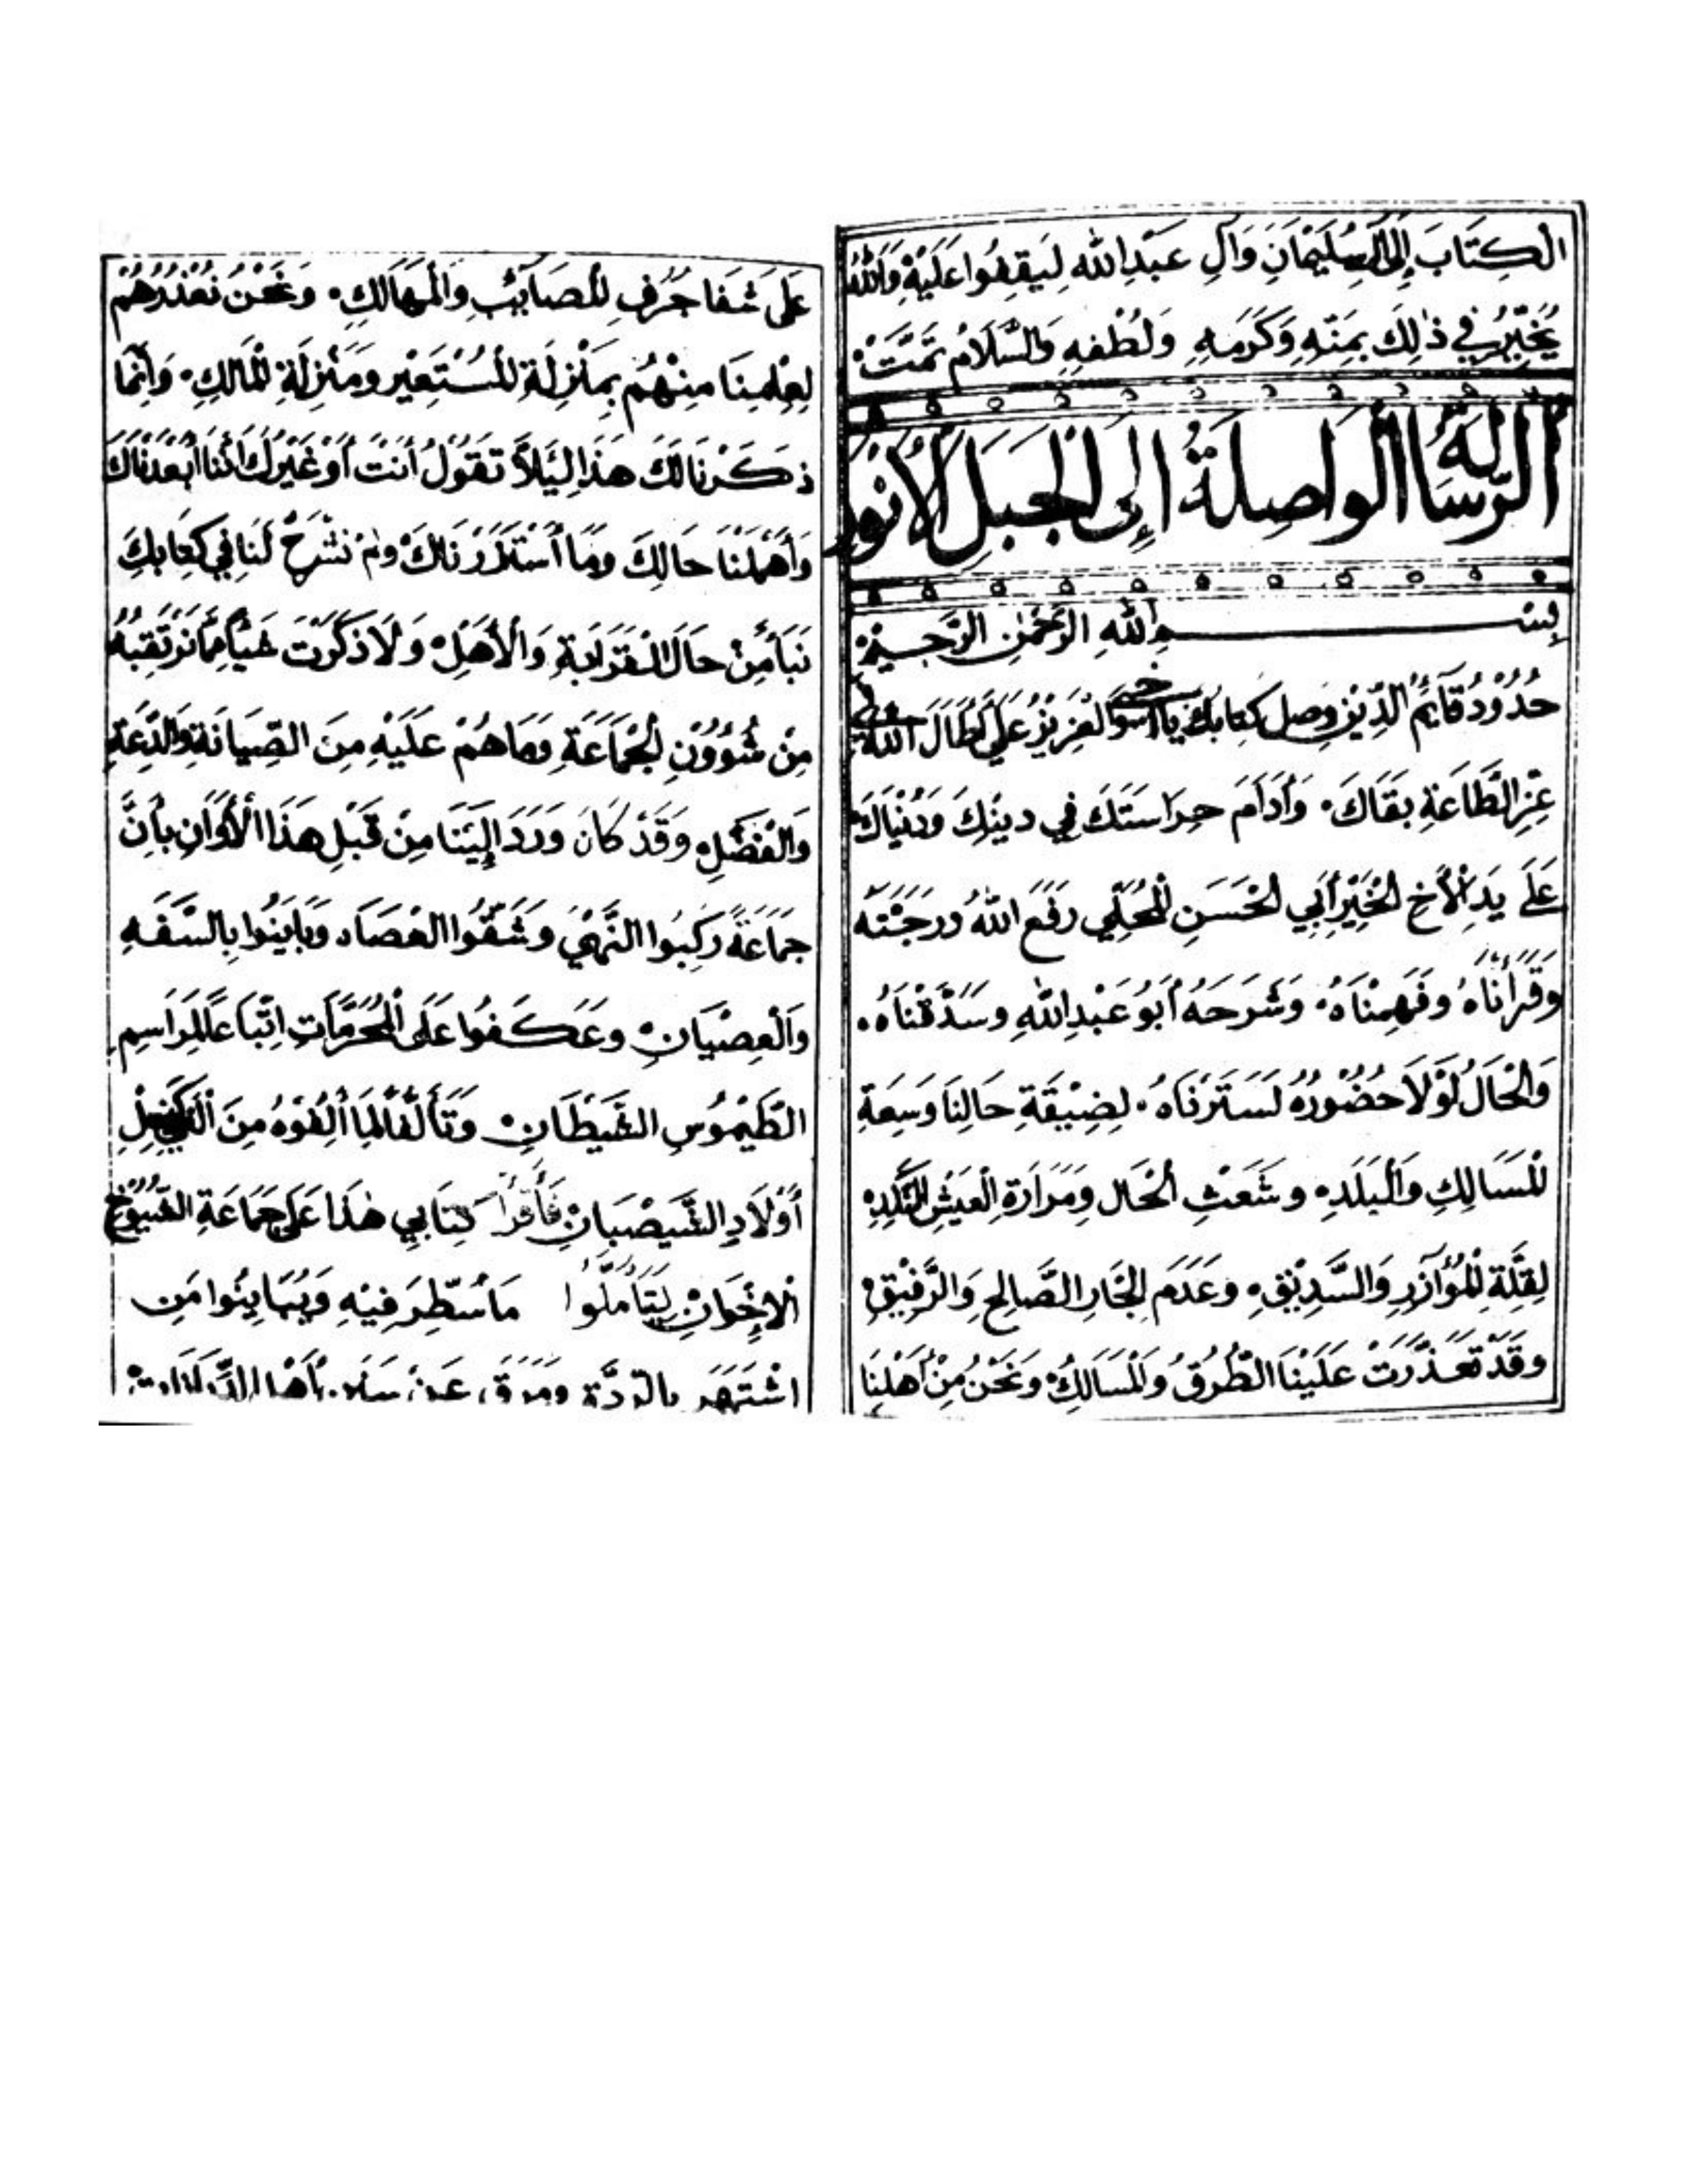 الْكِتَابَ إِلَى آلِ سُلَيْمَانَ وَآلِ عَبْدِ اللهِ لِيَقِفُوا عَلَيْهِ وَاللهُ
يُخَيِّرُ فِي ذٰلِكَ بِمَنِّهِ وَكَرَمِهِ وَلُطْفِهِ وَالسَّلَامُ تَمَّتْ
الرِّسَالَةُ الْوَاصِلَةُ إِلَى الْجَبَلِ الْأَنْوَرِ
بِسْمِ اللهِ الرَّحْمٰنِ الرَّحِيمِ
حُدُودُ قَائِمُ الدِّينِ وصل كتابك يا أخي الْعَزِيزُ عَلَيَّ أَطَالَ اللهُ في
عِزِّ الطَّاعَةِ بَقَاكَ. وَأَدَامَ حِرَاسَتَكَ فِي دِينِكَ وَدُنْيَاكَ
عَلَى يَدِ الْأَخِ الْخَيِّرِ أَبِي الْحَسَنِ الْمُحَلِّي رَفَعَ اللهُ درجته
وَقَرَأْنَاهُ وَفَهِمْنَاهُ. وَشَرَحَهُ أَبُو عَبْدِ اللهِ وسَدَّقْنَاهُ.
وَالْحَالُ لَوْلَا حُضُورُهُ لَسَتَرْنَاهُ. لِضِيْقَةِ حَالِنَا وَسِعَةِ
الْمَسَالِكِ وَالْبَلَدِ. وَشَعَثِ الْحَالِ وَمَرَارَةِ الْعَيْشِ النَّكِدِ
لِقِلَّةِ الْمُؤَآزِرِ وَالسَّدِيْقِ. وَعَدَمِ الْجَارِ الصَّالِحِ وَالرَّفِيْقِ
وَقَدْ تَعَذَّرَتْ عَلَيْنَا الطُّرُقُ وَالْمَسَالِكُ وَنَحْنُ مِنْ أَهْلِنَا
عَلَى شَفَا جُرُفٍ لِلْمَصَايِبِ وَالْمَهَالِكِ. وَنَحْنُ نُعْذُرُهُمْ
لِعِلْمِنَا مِنْهُم بِمَنْزِلَةِ الْمُسْتَعِيْرِ وَمَنْزِلَةِ الْمَالِكِ. وَإِنَّمَا
ذَكَرْنَا لَكَ هَذَا لِيَلَّا تَقُوْلُ أَنْتَ أَوْ غَيْرُكَ أَنَّنَا أَبْعَدْنَاكَ
وَأَهْمَلْنَا حَالَكَ وَمَا أَسْتَذْرَرْنَاكَ وَلَمْ تَشْرَحْ لَنَا فِي كِتَابِكَ
نَبَأً مِنْ حَالِ الْقَرَابَةِ وَالْأَهْلِ وَلَا ذَكَرْتَ شَيْأً مِمَّا نَرْتَقِبُهُ
مِنْ شُؤُوْنِ الْجَمَاعَةِ وَمَا هُمْ عَلَيْهِ مِنَ الصِّيَانَةِ وَالدِّعَةِ
وَالْفَضْلِ. وَقَدْ كَانَ وَرَدَ إِلَيْنَا مِنْ قَبْلِ هَذَا الْأَوَانِ بِأَنَّ
جَمَاعَةً رَكِبُوا النَّهْيَ وَشَقُّوا الْعَصَا. وَبَايَنُوا بِالسَّفَهِ
وَالْعِصْيَانِ. وَعَكَفُوا عَلَى الْمُحَرَّمَاتِ اتِّبَاعًا لِمَرَاسِمِ
الطَّيْمُوسِ الشَّيْطَانِ. وَتَأَلُّفًا لِمَا أَلِفُوْهُ مِنَ
أَوْلَادِ الشَّيْصَبَانِ فَأَقْرَأْ كِتَابِي هٰذَا عَلَى جَمَاعَةِ الشُّيُوْخِ
الْإِخْوَانِ لِيَتَأَمَّلُوا مَا سُطِّرَ فِيْهِ وَيُبَايِنُوا مَنِ
اشْتَهَرَ بِالرِّدَّةِ وَمَرَقَ عَنْ